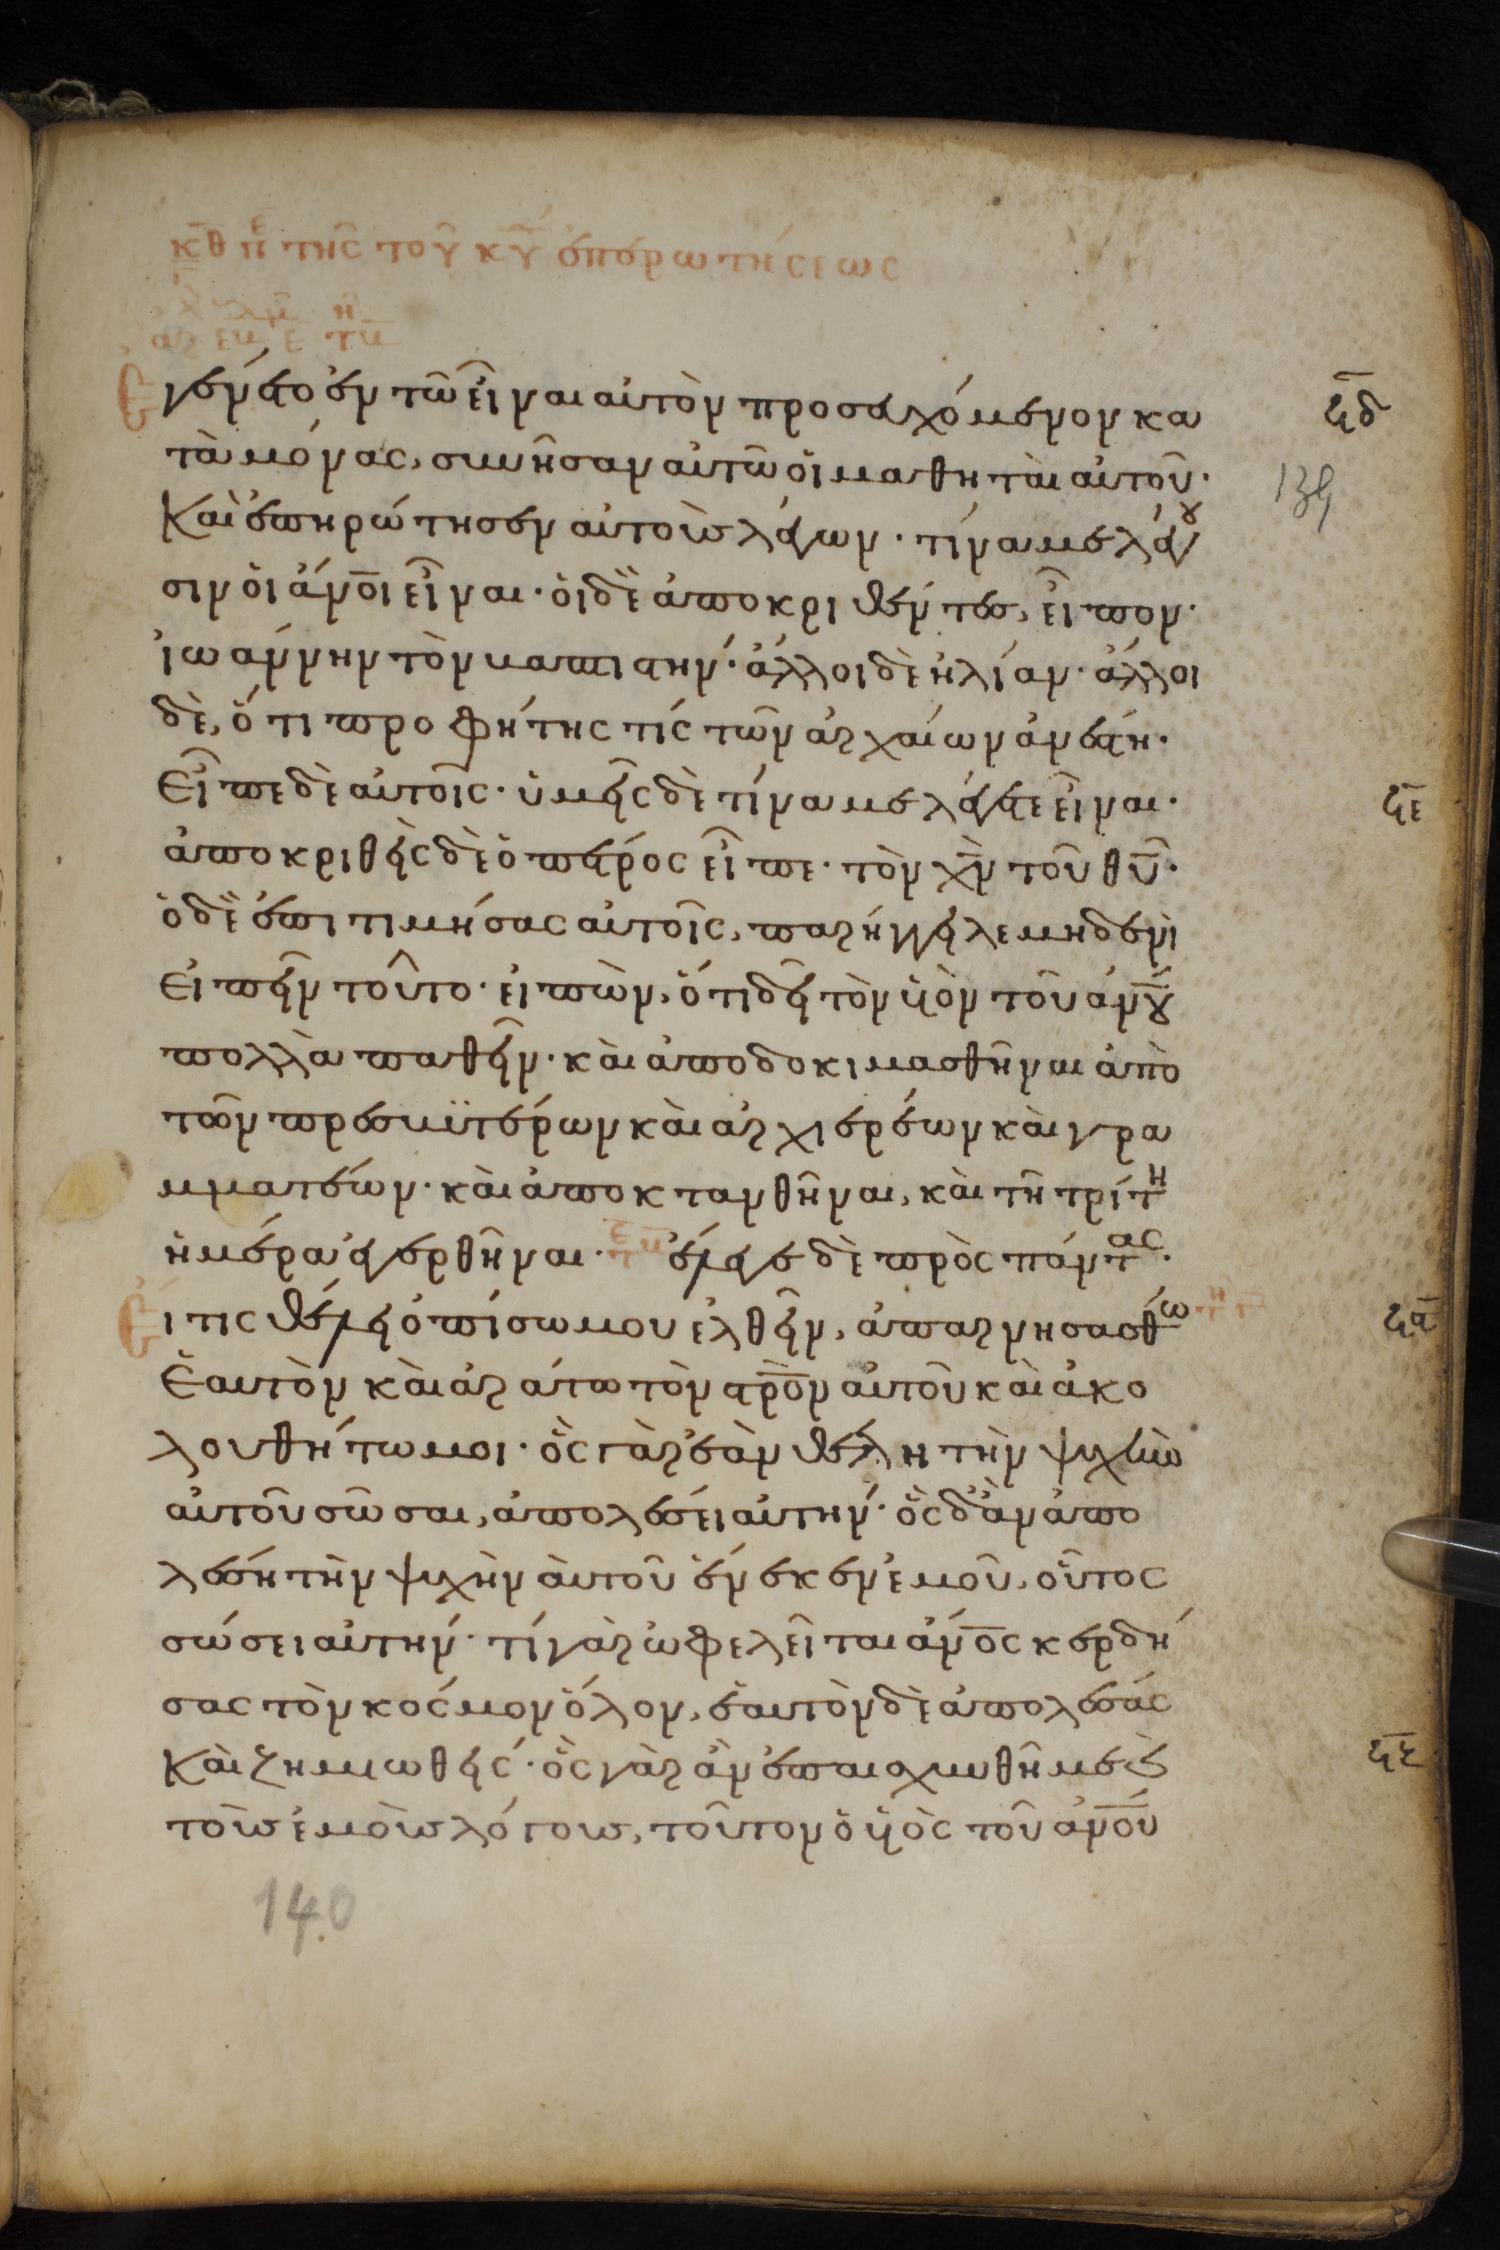 κθ πε τῆς τοῦ κυ ἐπερωτήσεως
Ἐγένετο ἐν τῶ εἶναι αὐτὸν προσευχόμενον κα
ϟδ
ταμόνας, συνῆσαν αὐτῶ οἱ μαθηταὶ αὐτοῦ·
139
Καὶ ἐπηρώτησεν αὐτοὺς λέγων· τίνα με λέγου
σιν οἱ ἄνοι εἶναι· οἱ δὲ ἀποκριθέντες, εἶπον·
ἰωάννην τὸν βαπτιστήν· ἄλλοι δὲ ἠλίαν· ἄλλοι
δὲ, ὅτι προφήτης τίς τῶν ἀρχαίων ἀνέστη·
Εἶπε δὲ αὐτοῖς· ὑμεῖς δὲ τίνα με λέγετε εἶναι·
ϟε
ἀποκριθεὶς δὲ ὁ πέτρος εἶπε· τὸν χν τοῦ θυ·
ὁ δὲ ἐπιτιμήσας αὐτοῖς, παρήγγειλε μηδενὶ
Εἰπεῖν τοῦτο· εἰπὼν, ὅτι δεῖ τὸν υἱὸν τοῦ ἀνου
πολλὰ παθεῖν· καὶ ἀποδοκιμασθῆναι ἀπὸ
τῶν πρεσβϋτέρων καὶ ἀρχιερέων καὶ γρα
μματέων· καὶ ἀποκτανθῆναι, καὶ τῆ τρίτη
ἡμέρα ἐγερθῆναι· ἔλεγε δὲ πρὸς πάντας·
Εἴ τις θέλει ὀπίσω μου ἐλθεῖν, ἀπαρνησασθω
Ἑαυτὸν καὶ ἀράτω τὸν στρον αὐτοῦ καὶ ἀκο
λουθήτω μοι· ὃς γὰρ ἐὰν θέλη τὴν ψυχὴν
αὐτοῦ σῶσαι, ἀπολέσει αὐτήν· ὃς δ' ἂν ἀπο
λέση τὴν ψυχὴν αὐτοῦ ἕνεκεν ἐμοῦ, οὗτος
σώσει αὐτήν· τί γὰρ ὠφελεῖται ἄνος κερδή
σας τὸν κόσμον ὅλον, ἑαυτὸν δὲ ἀπολέσας
Καὶ ζημιωθείς· ὃς γὰρ ἂν ἐπαισχυνθῆ με καὶ
τοὺς ἐμοὺς λόγους, τοῦτον ὁ υἱὸς τοῦ ἀνου
140